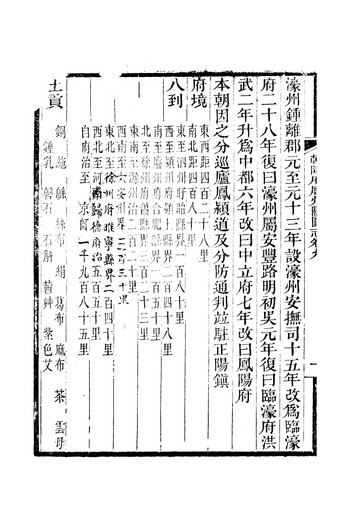 濠州鍾離郡元至元十三年設濠州安撫司十五年改爲臨濠
府二十八年復曰濠州屬安豐路明初吳元年復曰臨濠府洪
武二年升爲中都六年改曰中立府七年改曰鳳陽府
本朝因之分巡廬鳳潁道及分防通判竝駐正陽鎮
府境
東西距四百二十八里
南北距四百八十里
八到
東至泗州盱眙縣界一百八十里
西至潁州府潁上縣界二百四十八里
南至廬州府合肥縣界二百
北至徐州府 縣界二百二十三里
東南至滁州治二百二十
西南至六安州界二百三十里
東北至徐州府睢寧縣界二百四十里
西北至河南歸德府治五百五十里
自府治至 京師一千九百八十五里
土貢
銅 絁 緜 絲布 絹 葛布 麻布 茶 雲母
鍾乳 磬石 石斛 蓍草 紫色艾